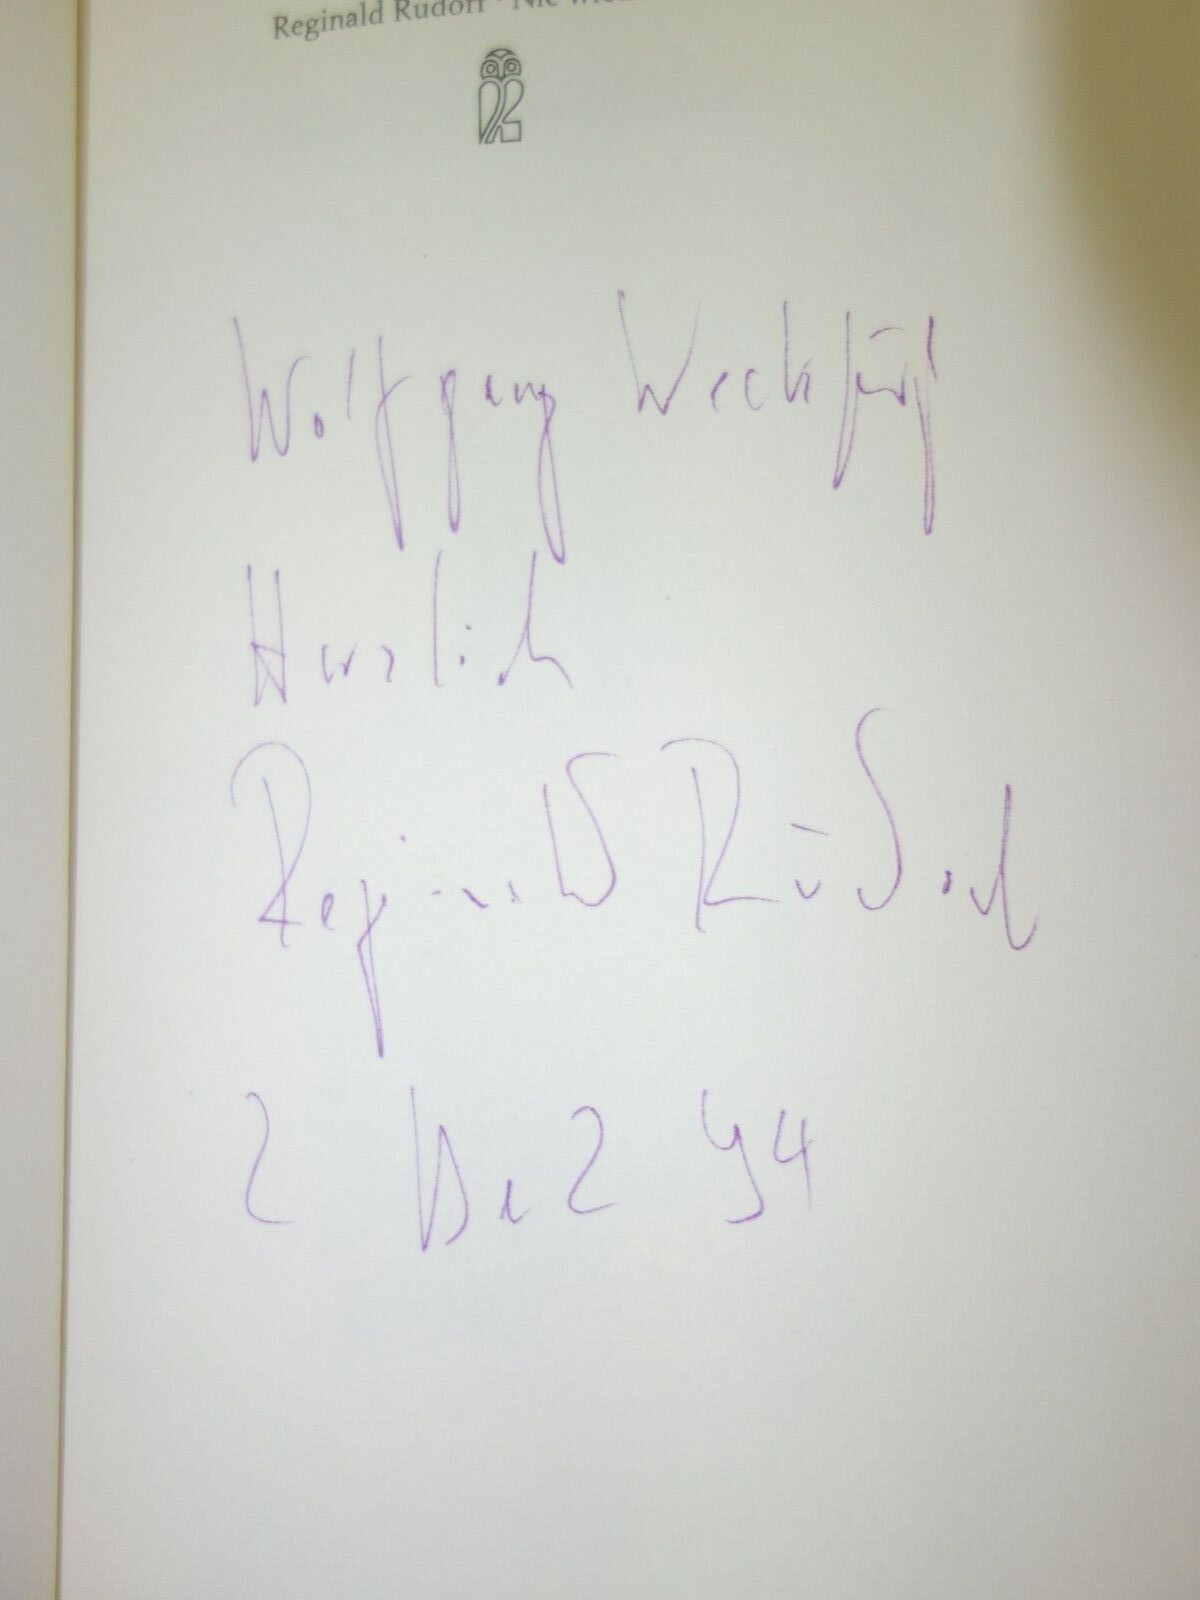 Reginald Rudorf · Nie
Wolfgang
Herzlich
Reginald Rudorf
2 Dez 94